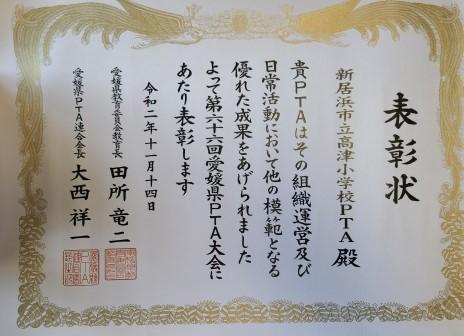 表彰状
新居浜市立高津小学校PTA殿
貴PTAはその組織運営及び
日常活動において他の模範となる
優れた成果をあげられました
よって第六十六回愛媛県PTA大会に
あたり表彰します
令和二年十一月十四日
愛媛県教育委員会教育長 田所竜二
愛媛県PTA連合会長 大西祥一